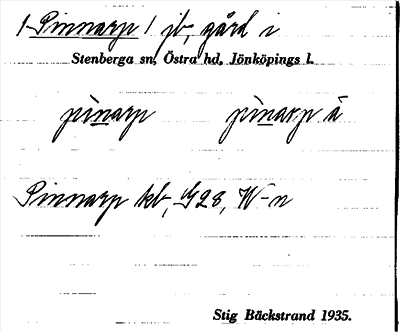 / Pinnarp / jb, gård i
Stenberga sn, Östra hd, Jönköpings l.
pìnarp pìnarp å
Pinnarp kb, G28, W-n
Stig Bäckstrand 1935.